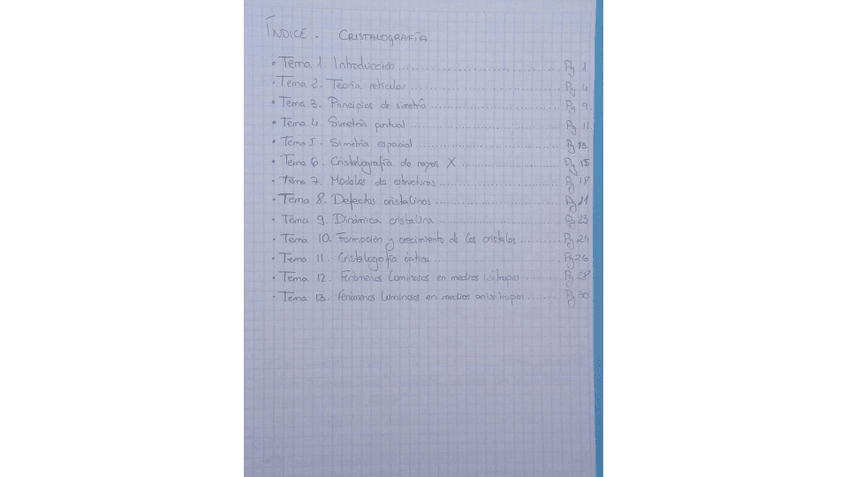 ÍNDICE. CRISTALOGRAFÍA.
• Tema 1. Introducción ........ Pg 1
• Tema 2. Teoría reticular ........ Pg 4
• Tema 3. Principios de simetría ........ Pg 9
• Tema 4. Simetría puntual ........ Pg 11
• Tema 5. Simetría espacial ........ Pg 13
• Tema 6. Cristalografía de rayos X ........ Pg 15
• Tema 7. Modelos de estructuras ........ Pg 18
• Tema 8. Defectos cristalinos ........ Pg 21
• Tema 9. Dinámica cristalina ........ Pg 23
• Tema 10. Formación y crecimiento de los cristales ........ Pg 24
• Tema 11. Cristalografía óptica ........ Pg 26
• Tema 12. Fenómenos luminosos en medios isótropos ........ Pg 28
• Tema 13. Fenómenos luminosos en medios anisótropos ........ Pg 30